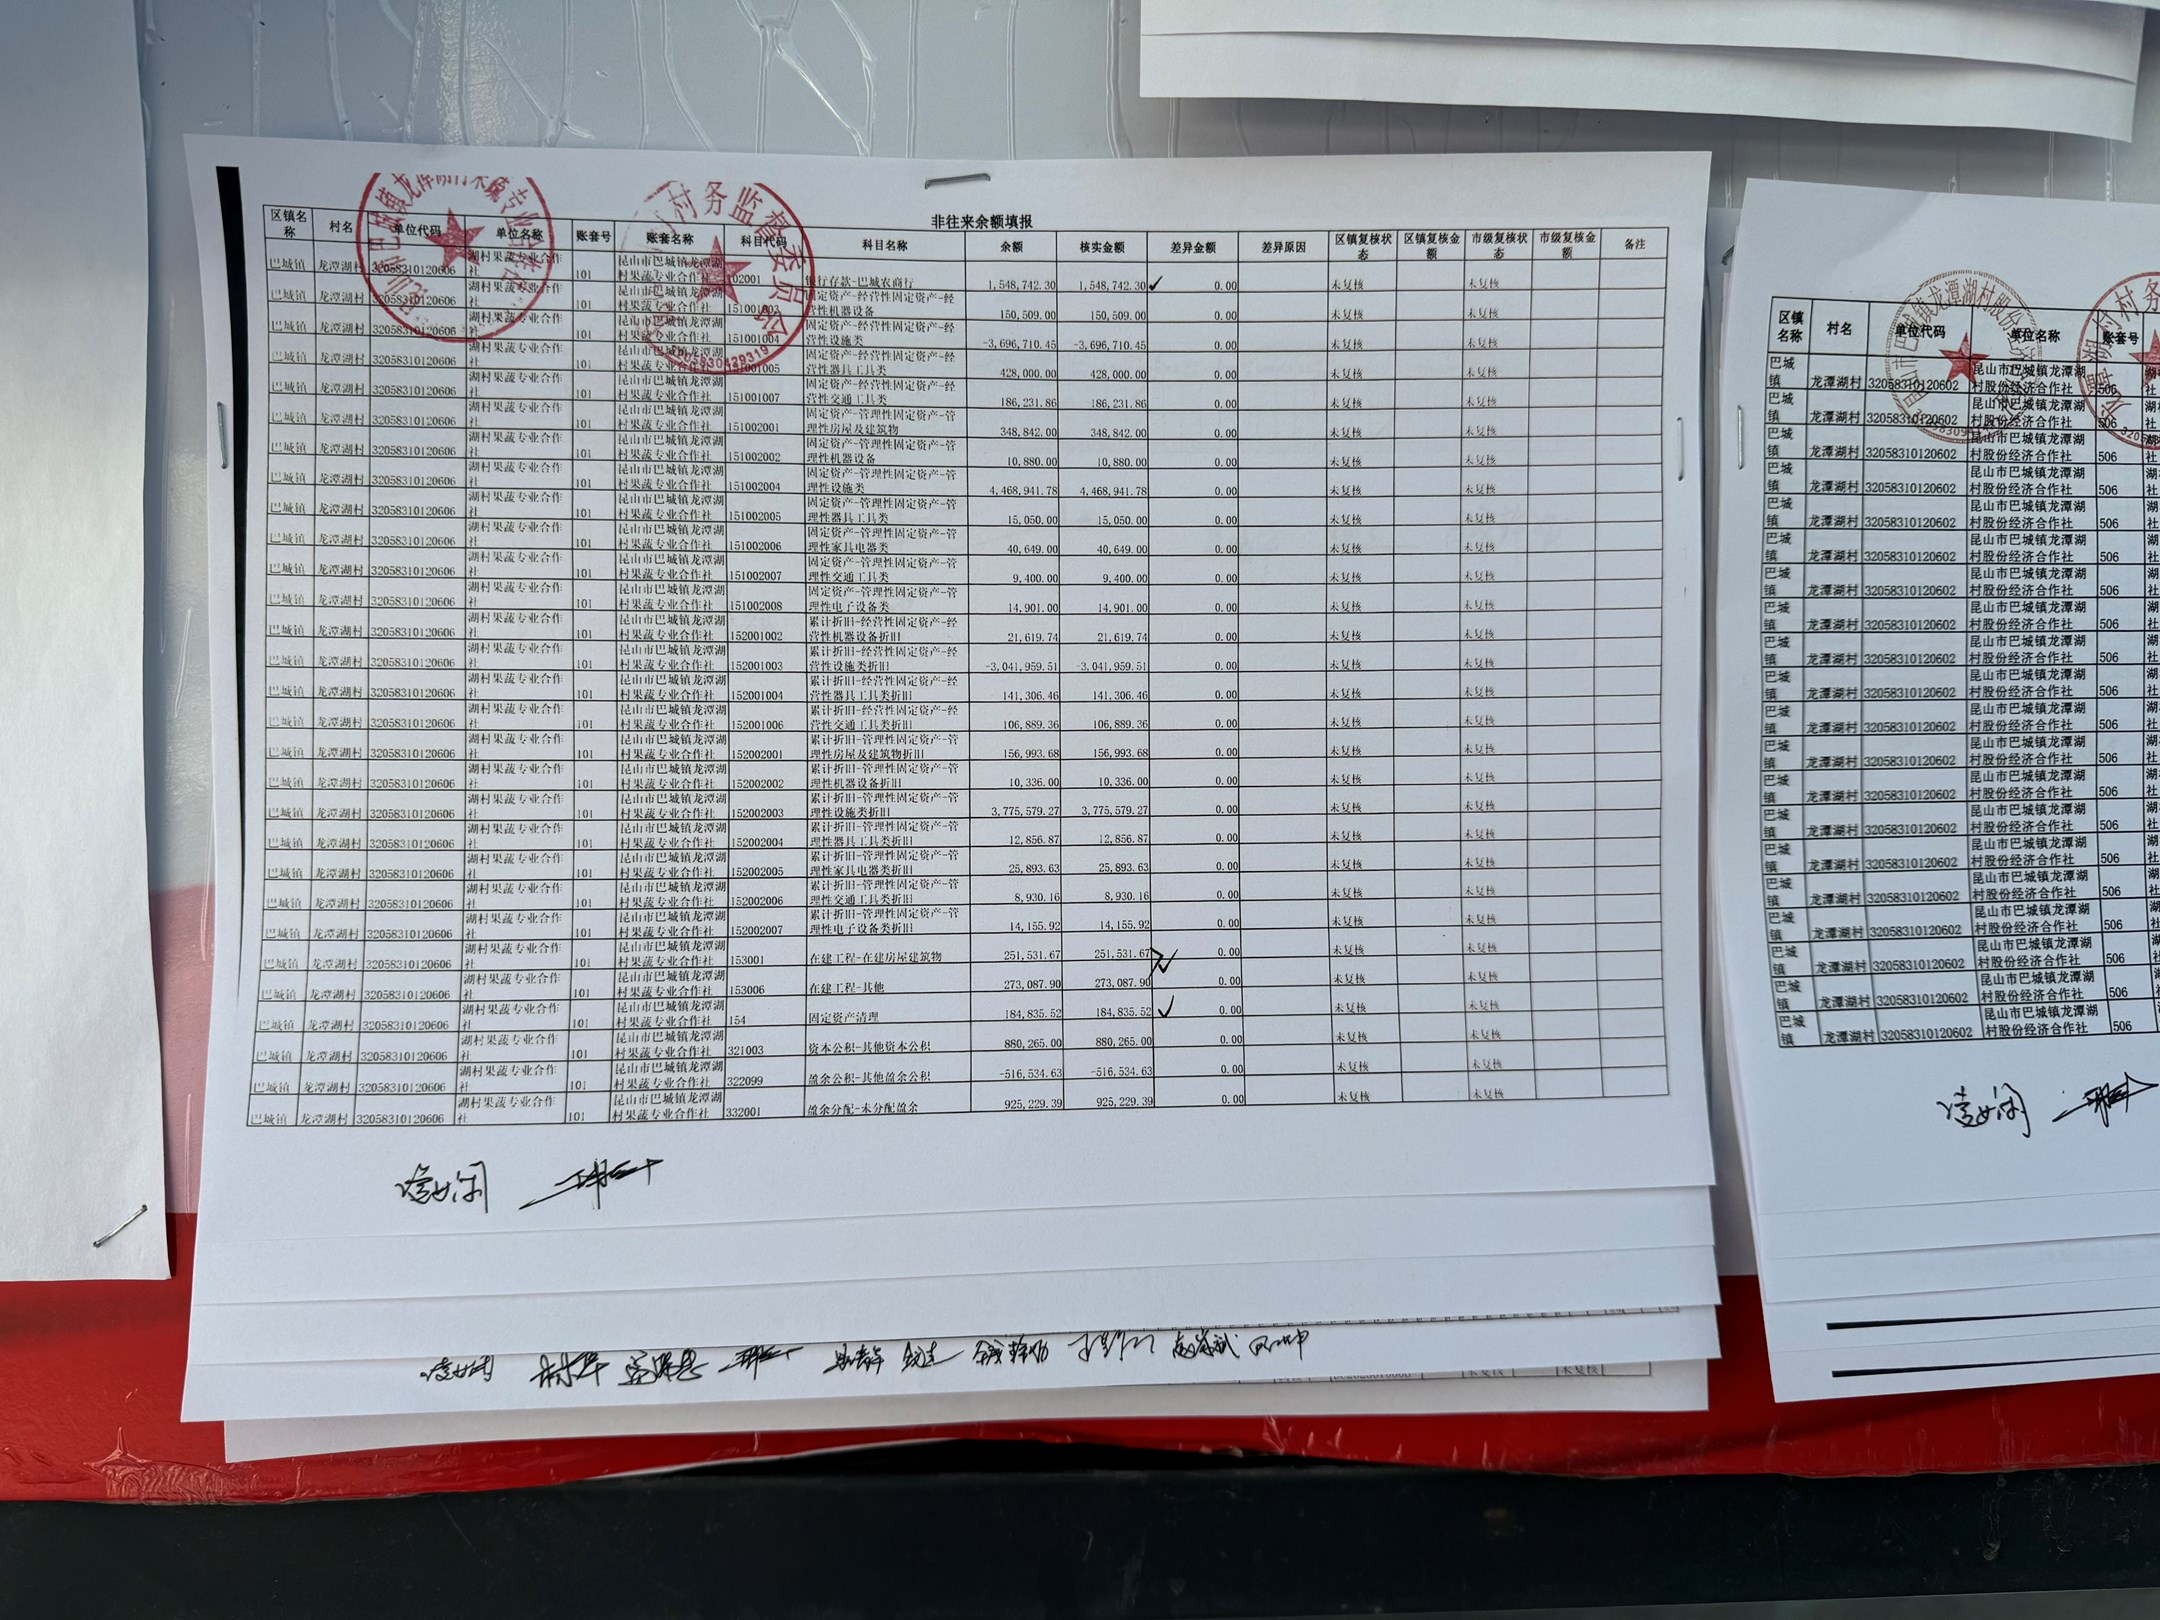 非往来余额填报
区镇名称 村名 单位代码 单位名称 账套号 账套名称 科目代码 科目名称 余额 核实金额 差异金额 差异原因 区镇复核状态 区镇复核金额 市级复核状态 市级复核金额 备注
巴城镇 龙潭湖村 32058310120606 湖村果蔬专业合作社 101 昆山市巴城镇龙潭湖村果蔬专业合作社 102001 银行存款-巴城农商行 1,548,742.30 1,548,742.30 0.00 未复核 未复核
巴城镇 龙潭湖村 32058310120606 湖村果蔬专业合作社 101 昆山市巴城镇龙潭湖村果蔬专业合作社 固定资产-经营性固定资产-经营性机器设备 150,509.00 150,509.00 0.00 未复核 未复核
巴城镇 龙潭湖村 32058310120606 湖村果蔬专业合作社 101 昆山市巴城镇龙潭湖村果蔬专业合作社 151001004 固定资产-经营性固定资产-经营性设施类 -3,696,710.45 -3,696,710.45 0.00 未复核 未复核
巴城镇 龙潭湖村 32058310120606 湖村果蔬专业合作社 101 昆山市巴城镇龙潭湖村果蔬专业合作社 151001005 固定资产-经营性固定资产-经营性器具工具类 428,000.00 428,000.00 0.00 未复核 未复核
巴城镇 龙潭湖村 32058310120606 湖村果蔬专业合作社 101 昆山市巴城镇龙潭湖村果蔬专业合作社 151001007 固定资产-经营性固定资产-经营性交通工具类 186,231.86 186,231.86 0.00 未复核 未复核
巴城镇 龙潭湖村 32058310120606 湖村果蔬专业合作社 101 昆山市巴城镇龙潭湖村果蔬专业合作社 151002001 固定资产-管理性固定资产-管理性房屋及建筑物 348,842.00 348,842.00 0.00 未复核 未复核
巴城镇 龙潭湖村 32058310120606 湖村果蔬专业合作社 101 昆山市巴城镇龙潭湖村果蔬专业合作社 151002002 固定资产-管理性固定资产-管理性机器设备 10,880.00 10,880.00 0.00 未复核 未复核
巴城镇 龙潭湖村 32058310120606 湖村果蔬专业合作社 101 昆山市巴城镇龙潭湖村果蔬专业合作社 151002004 固定资产-管理性固定资产-管理性设施类 4,468,941.78 4,468,941.78 0.00 未复核 未复核
巴城镇 龙潭湖村 32058310120606 湖村果蔬专业合作社 101 昆山市巴城镇龙潭湖村果蔬专业合作社 151002005 固定资产-管理性固定资产-管理性器具工具类 15,050.00 15,050.00 0.00 未复核 未复核
巴城镇 龙潭湖村 32058310120606 湖村果蔬专业合作社 101 昆山市巴城镇龙潭湖村果蔬专业合作社 151002006 固定资产-管理性固定资产-管理性家具电器类 40,649.00 40,649.00 0.00 未复核 未复核
巴城镇 龙潭湖村 32058310120606 湖村果蔬专业合作社 101 昆山市巴城镇龙潭湖村果蔬专业合作社 151002007 固定资产-管理性固定资产-管理性交通工具类 9,400.00 9,400.00 0.00 未复核 未复核
巴城镇 龙潭湖村 32058310120606 湖村果蔬专业合作社 101 昆山市巴城镇龙潭湖村果蔬专业合作社 151002008 固定资产-管理性固定资产-管理性电子设备类 14,901.00 14,901.00 0.00 未复核 未复核
巴城镇 龙潭湖村 32058310120606 湖村果蔬专业合作社 101 昆山市巴城镇龙潭湖村果蔬专业合作社 152001002 累计折旧-经营性固定资产-经营性机器设备折旧 21,619.74 21,619.74 0.00 未复核 未复核
巴城镇 龙潭湖村 32058310120606 湖村果蔬专业合作社 101 昆山市巴城镇龙潭湖村果蔬专业合作社 152001003 累计折旧-经营性固定资产-经营性设施类折旧 -3,041,959.51 -3,041,959.51 0.00 未复核 未复核
巴城镇 龙潭湖村 32058310120606 湖村果蔬专业合作社 101 昆山市巴城镇龙潭湖村果蔬专业合作社 152001004 累计折旧-经营性固定资产-经营性器具工具类折旧 141,306.46 141,306.46 0.00 未复核 未复核
巴城镇 龙潭湖村 32058310120606 湖村果蔬专业合作社 101 昆山市巴城镇龙潭湖村果蔬专业合作社 152001006 累计折旧-经营性固定资产-经营性交通工具类折旧 106,889.36 106,889.36 0.00 未复核 未复核
巴城镇 龙潭湖村 32058310120606 湖村果蔬专业合作社 101 昆山市巴城镇龙潭湖村果蔬专业合作社 152002001 累计折旧-管理性固定资产-管理性房屋及建筑物折旧 156,993.68 156,993.68 0.00 未复核 未复核
巴城镇 龙潭湖村 32058310120606 湖村果蔬专业合作社 101 昆山市巴城镇龙潭湖村果蔬专业合作社 152002002 累计折旧-管理性固定资产-管理性机器设备折旧 10,336.00 10,336.00 0.00 未复核 未复核
巴城镇 龙潭湖村 32058310120606 湖村果蔬专业合作社 101 昆山市巴城镇龙潭湖村果蔬专业合作社 152002003 累计折旧-管理性固定资产-管理性设施类折旧 3,775,579.27 3,775,579.27 0.00 未复核 未复核
巴城镇 龙潭湖村 32058310120606 湖村果蔬专业合作社 101 昆山市巴城镇龙潭湖村果蔬专业合作社 152002004 累计折旧-管理性固定资产-管理性器具工具类折旧 12,856.87 12,856.87 0.00 未复核 未复核
巴城镇 龙潭湖村 32058310120606 湖村果蔬专业合作社 101 昆山市巴城镇龙潭湖村果蔬专业合作社 152002005 累计折旧-管理性固定资产-管理性家具电器类折旧 25,893.63 25,893.63 0.00 未复核 未复核
巴城镇 龙潭湖村 32058310120606 湖村果蔬专业合作社 101 昆山市巴城镇龙潭湖村果蔬专业合作社 152002006 累计折旧-管理性固定资产-管理性交通工具类折旧 8,930.16 8,930.16 0.00 未复核 未复核
巴城镇 龙潭湖村 32058310120606 湖村果蔬专业合作社 101 昆山市巴城镇龙潭湖村果蔬专业合作社 152002007 累计折旧-管理性固定资产-管理性电子设备类折旧 14,155.92 14,155.92 0.00 未复核 未复核
巴城镇 龙潭湖村 32058310120606 湖村果蔬专业合作社 101 昆山市巴城镇龙潭湖村果蔬专业合作社 153001 在建工程-在建房屋建筑物 251,531.67 251,531.67 0.00 未复核 未复核
巴城镇 龙潭湖村 32058310120606 湖村果蔬专业合作社 101 昆山市巴城镇龙潭湖村果蔬专业合作社 153006 在建工程-其他 273,087.90 273,087.90 0.00 未复核 未复核
巴城镇 龙潭湖村 32058310120606 湖村果蔬专业合作社 101 昆山市巴城镇龙潭湖村果蔬专业合作社 154 固定资产清理 184,835.52 184,835.52 0.00 未复核 未复核
巴城镇 龙潭湖村 32058310120606 湖村果蔬专业合作社 101 昆山市巴城镇龙潭湖村果蔬专业合作社 321003 资本公积-其他资本公积 880,265.00 880,265.00 0.00 未复核 未复核
巴城镇 龙潭湖村 32058310120606 湖村果蔬专业合作社 101 昆山市巴城镇龙潭湖村果蔬专业合作社 322099 盈余公积-其他盈余公积 -516,534.63 -516,534.63 0.00 未复核 未复核
巴城镇 龙潭湖村 32058310120606 湖村果蔬专业合作社 101 昆山市巴城镇龙潭湖村果蔬专业合作社 332001 盈余分配-未分配盈余 925,229.39 925,229.39 0.00 未复核 未复核
村务监督委员会
区镇名称 村名 单位代码 单位名称 账套号
巴城镇 龙潭湖村 32058310120602 昆山市巴城镇龙潭湖村股份经济合作社 506
巴城镇 龙潭湖村 32058310120602 昆山市巴城镇龙潭湖村股份经济合作社 506
巴城镇 龙潭湖村 32058310120602 昆山市巴城镇龙潭湖村股份经济合作社 506
巴城镇 龙潭湖村 32058310120602 昆山市巴城镇龙潭湖村股份经济合作社 506
巴城镇 龙潭湖村 32058310120602 昆山市巴城镇龙潭湖村股份经济合作社 506
巴城镇 龙潭湖村 32058310120602 昆山市巴城镇龙潭湖村股份经济合作社 506
巴城镇 龙潭湖村 32058310120602 昆山市巴城镇龙潭湖村股份经济合作社 506
巴城镇 龙潭湖村 32058310120602 昆山市巴城镇龙潭湖村股份经济合作社 506
巴城镇 龙潭湖村 32058310120602 昆山市巴城镇龙潭湖村股份经济合作社 506
巴城镇 龙潭湖村 32058310120602 昆山市巴城镇龙潭湖村股份经济合作社 506
巴城镇 龙潭湖村 32058310120602 昆山市巴城镇龙潭湖村股份经济合作社 506
巴城镇 龙潭湖村 32058310120602 昆山市巴城镇龙潭湖村股份经济合作社 506
巴城镇 龙潭湖村 32058310120602 昆山市巴城镇龙潭湖村股份经济合作社 506
巴城镇 龙潭湖村 32058310120602 昆山市巴城镇龙潭湖村股份经济合作社 506
巴城镇 龙潭湖村 32058310120602 昆山市巴城镇龙潭湖村股份经济合作社 506
巴城镇 龙潭湖村 32058310120602 昆山市巴城镇龙潭湖村股份经济合作社 506
巴城镇 龙潭湖村 32058310120602 昆山市巴城镇龙潭湖村股份经济合作社 506
巴城镇 龙潭湖村 32058310120602 昆山市巴城镇龙潭湖村股份经济合作社 506
巴城镇 龙潭湖村 32058310120602 昆山市巴城镇龙潭湖村股份经济合作社 506
巴城镇 龙潭湖村 32058310120602 昆山市巴城镇龙潭湖村股份经济合作社 506